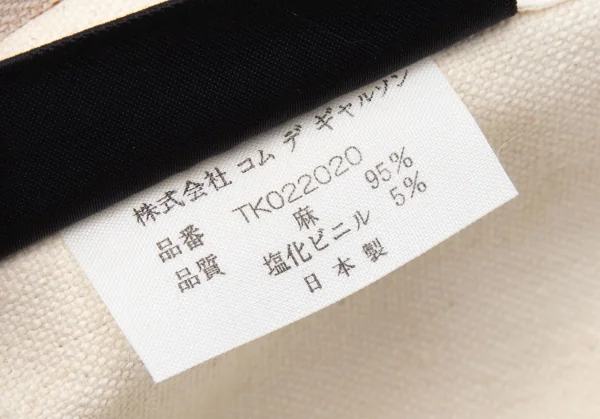 株式会社 コム デ ギャルソン
品番 TK022020
品質 麻 95%
塩化ビニル 5%
日本製